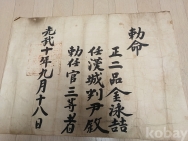 勅命
正二品金泳
任漢城判尹叙
勅任官三等者
光武十年九月十八日
kobay